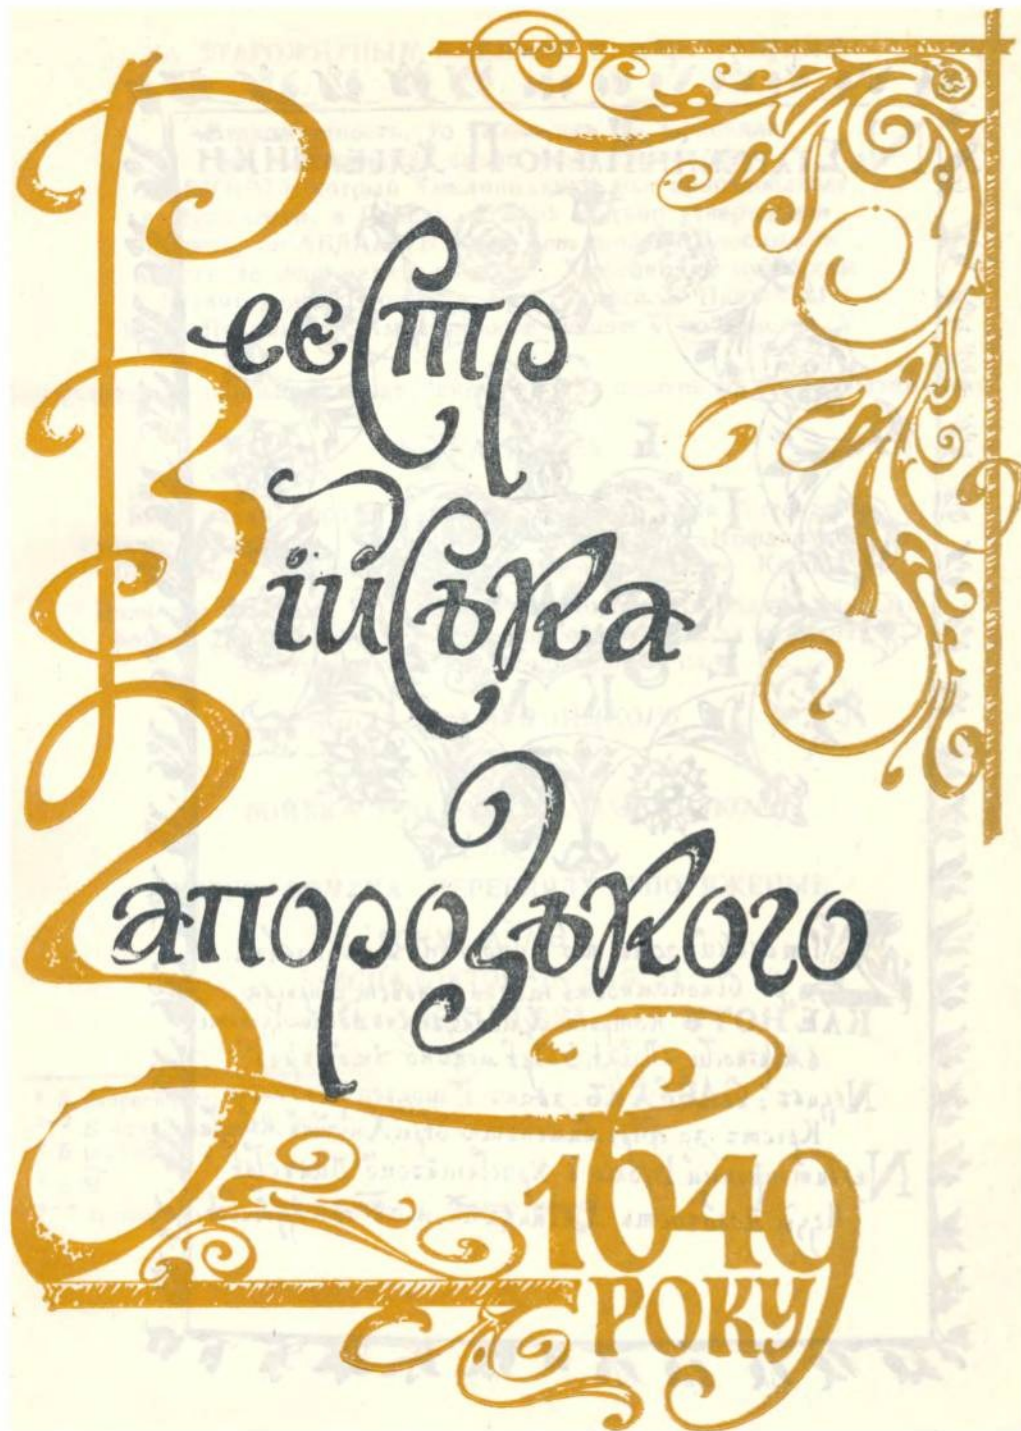 Реєстр
Війська
Запорозького
1649
РОКУ